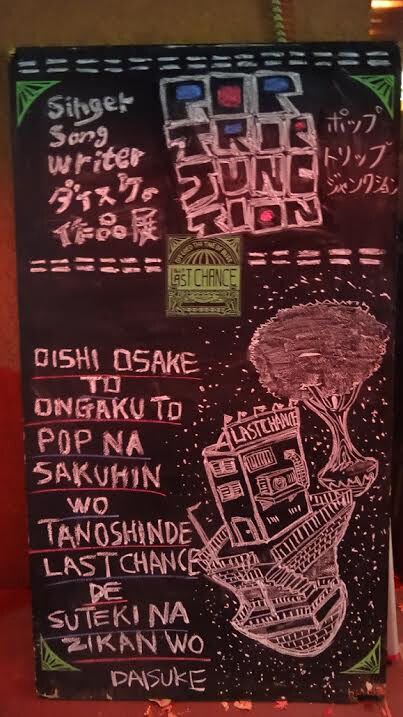 Singer
Song
Writer
ダイスケの
作品展
POP
TRIP
JUNC
TION
ポップ
トリップ
ジャンクション
LAST CHANCE
OISHI OSAKE
TO
ONGAKU TO
POP NA
SAKUHIN
WO
TANOSHINDE
LAST CHANCE
DE
SUTEKI NA
ZIKAN WO
DAISUKE
LAST CHANC